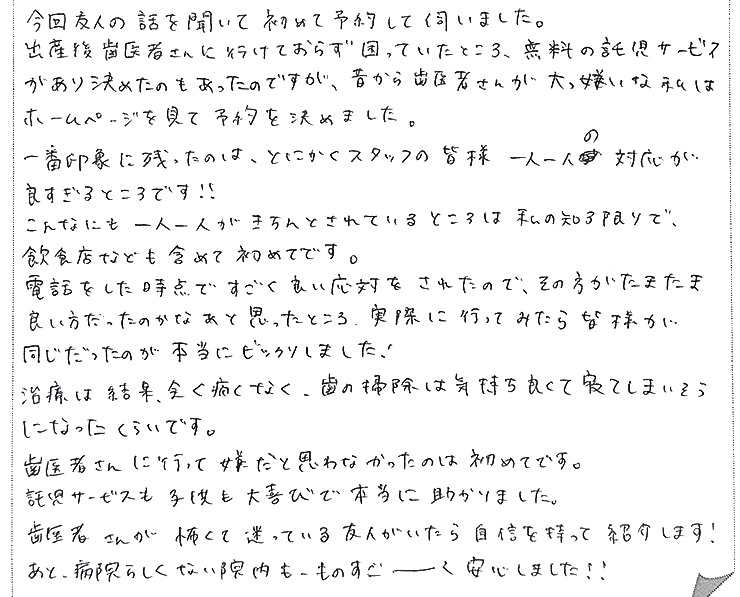 今回友人の話を聞いて初めて予約して伺いました。
出産後歯医者さんに行けておらず困っていたところ、無料の託児サービス
があり決めたのもあったのですが、昔から歯医者さんが大っ嫌いな私は
ホームページを見て予約を決めました。
一番印象に残ったのは、とにかくスタッフの皆様一人一人の対応が
良すぎるところです!!
こんなにも一人一人がきちんとされているところは私の知る限りで、
飲食店なども含めて初めてです。
電話をした時点ですごく良い応対をされたので、その方がたまたま
良い方だったのかなぁと思ったところ、実際に行ってみたら皆様が
同じだったのが本当にビックリしました!
治療は結果、全く痛くなく、歯の掃除は気持ち良くて寝てしまいそう
になったくらいです。
歯医者さんに行って嫌だと思わなかったのは初めてです。
託児サービスも子供も大喜びで本当に助かりました。
歯医者さんが怖くて迷っている友人がいたら自信を持って紹介します!
あと、病院らしくない院内も、ものすごーーく安心しました!!